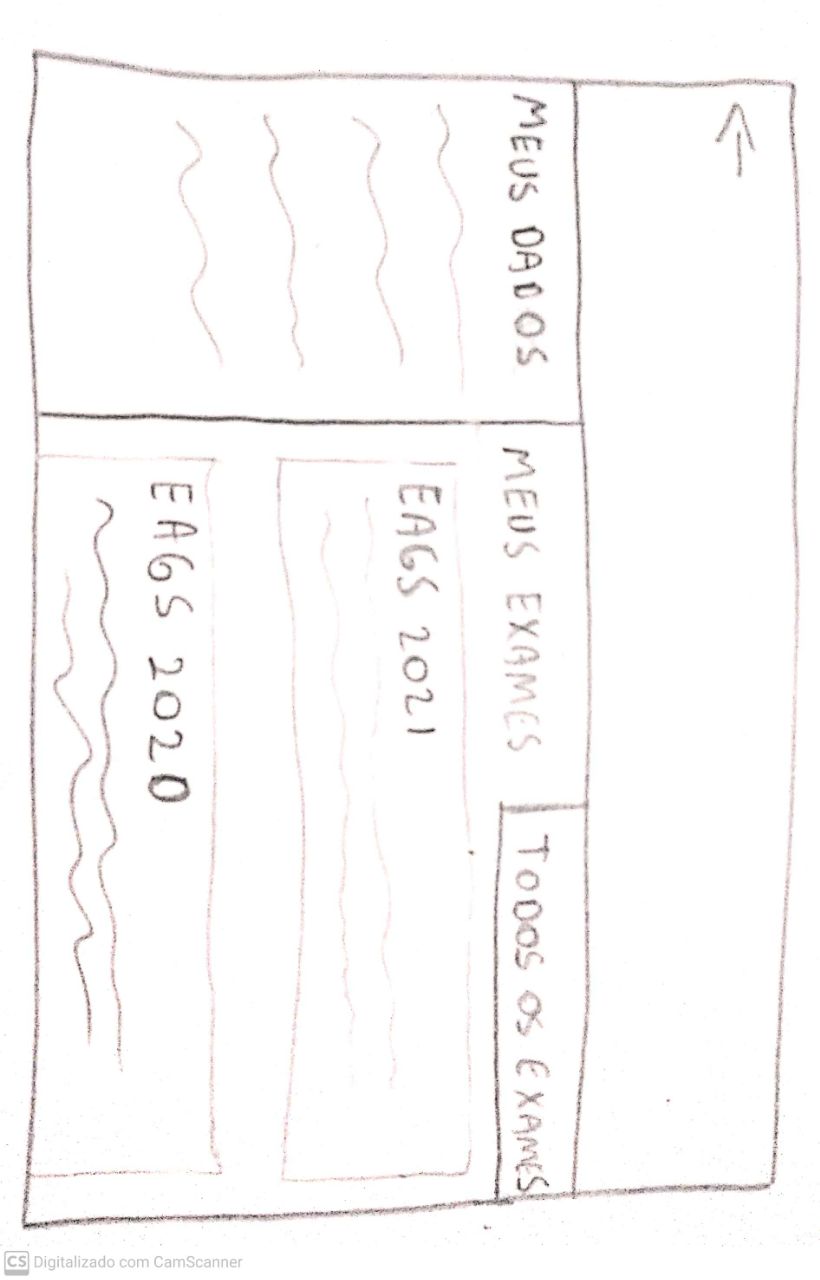 MEUS DADOS
MEUS EXAMES
TODOS OS EXAMES
EAGS 2021
EAGS 2020
CS Digitalizado com CamScanner